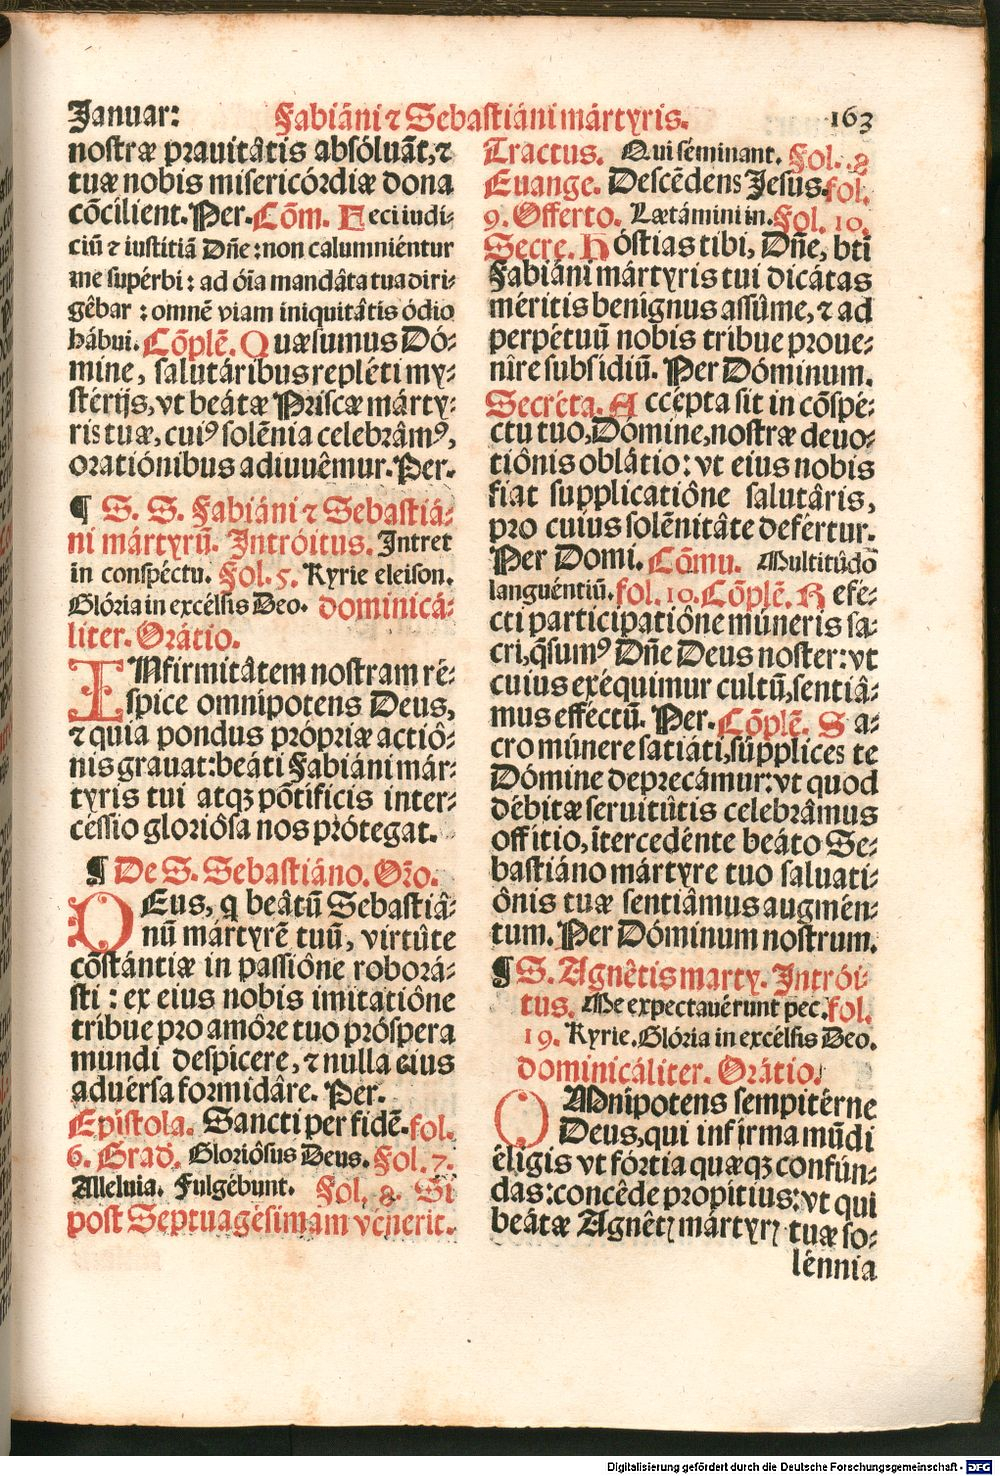 Januar: Fabiáni ⁊ Sebastiáni mártyris. 163
nostræ prauitâtis absóluāt,⁊
tuæ nobis misericórdiæ dona
cōcilient. Per. Cōm. Feci iudi-
ciū ⁊ iustitiā Dn̄e: non calumniéntur
me supérbi: ad ōia mandâta tua diri-
gêbar: omnē viam iniquitâtis ódio
hábui. Cōplē. Quæsumus Dó-
mine, salutáribus repléti my-
stérijs, vt beátæ Priscæ márty-
ris tuæ, cuiꝰ solēnia celebrâmꝰ,
oratiónibus adiuuêmur. Per.
¶ S. S. Fabiáni ⁊ Sebastiá-
ni mártyrū. Intróitus. Intret
in conspéctu. Fol. 5. Kyrie eleison.
Glória in excélsis Deo. dominicá-
liter. Orátio.
INfirmitâtem nostram ré-
spice omnipotens Deus,
⁊ quia pondus própriæ actiô-
nis grauat: beáti Fabiáni már-
tyris tui atqꝫ pōtificis inter-
céssio gloriôsa nos prótegat.
¶ De S. Sebastiáno. Oro.
DEus, q beâtū Sebastiâ-
nū mártyrē tuū, virtûte
cōstántiæ in passiône roborá-
sti: ex eius nobis imitatiône
tribue pro amôre tuo próspera
mundi despicere, ⁊ nulla eius
aduérsa formidâre. Per.
Epistola. Sancti per fidē. fol.
6. Grad. Gloriôsus Deus. Fol. 7.
Alleluia. Fulgêbunt. Fol. 8. Si
post Septuagésimam venerit.
Tractus. Qui séminant. Fol. 8
Euange. Descēdens Jesus. fol.
9. Offerto. Lætámini in. Fol. 10.
Secre. Hóstias tibi, Dn̄e, bt̄i
Fabiáni mártyris tui dicátas
méritis benignus assûme, ⁊ ad
perpétuū nobis tribue proue-
nîre subsídiū. Per Dóminum.
Secréta. Accepta sit in cōspé-
ctu tuo, Dómine, nostræ deuo-
tiônis oblâtio: vt eius nobis
fiat supplicatiône salutâris,
pro cuius solēnitâte deférтur.
Per Domi. Cōmu. Multitûdo
languéntiū. fol. 10. Cōplē. Refé-
cti participatiône múneris sa-
cri, q̄sumꝰ Dn̄e Deus noster: vt
cuius exéquimur cultū, sentiâ-
mus efféctū. Per. Cōplē. Sa-
cro múnere satiáti, súpplices te
Dómine deprecámur: vt quod
débitæ seruitûtis celebrâmus
offitio, ītercedénte beáto Se-
bastiáno mártyre tuo saluati-
ônis tuæ sentiâmus augmén-
tum. Per Dóminum nostrum.
¶ S. Agnêtis marty. Intrói-
tus. Me expectauérunt pec. fol.
19. Kyrie. Glória in excélsis Deo.
dominicáliter. Orátio.
OMnipotens sempitérne
Deus, qui infirma mūdi
éligis vt fórtia quæqꝫ confún-
das: concêde propitius: vt qui
beátæ Agnêtꝭ mártyrꝭ tuæ so-
lénnia
Digitalisierung gefördert durch die Deutsche Forschungsgemeinschaft - DFG